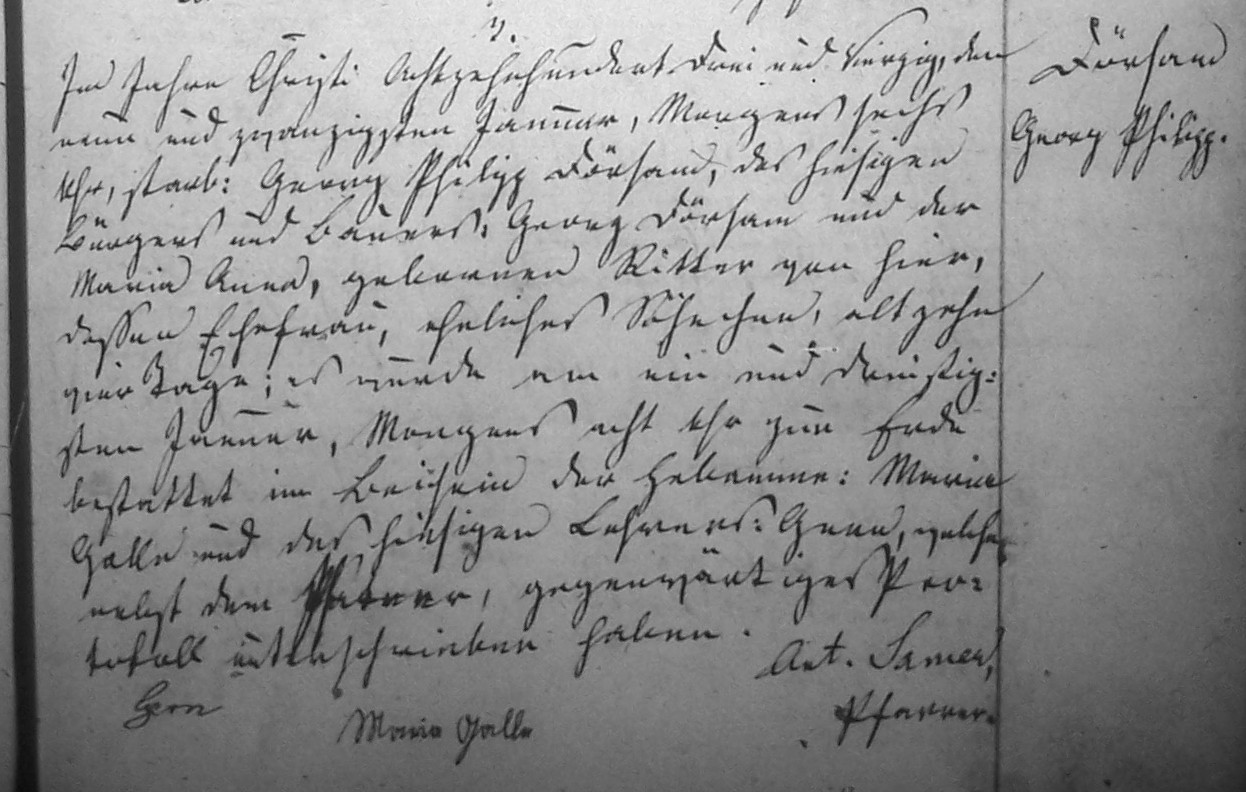 2.
Im Jahre Christi Achtzehnhundert drei und vierzig, den
neun und zwanzigsten Januar, Morgens sechs
Uhr, starb: Georg Philipp Dörsam, des hiesigen
Bürgers und Bauers: Georg Dörsam und der
Maria Anna, gebornen Ritter von hier,
dessen Ehefrau, eheliches Söhnchen, alt zehn
vier Tage; es wurde am ein und dreißig-
sten Januar, Morgens acht Uhr zur Erde
bestattet im Beisein der Hebamme: Maria
Galle und des hiesigen Lehrers: Gern, welche
nebst dem Pfarrer, gegenwärtiges Pro-
tokoll unterschrieben haben.
Ant.
Gern
Maria Galle
Pfarrer.
Dörsam
Georg Philipp.